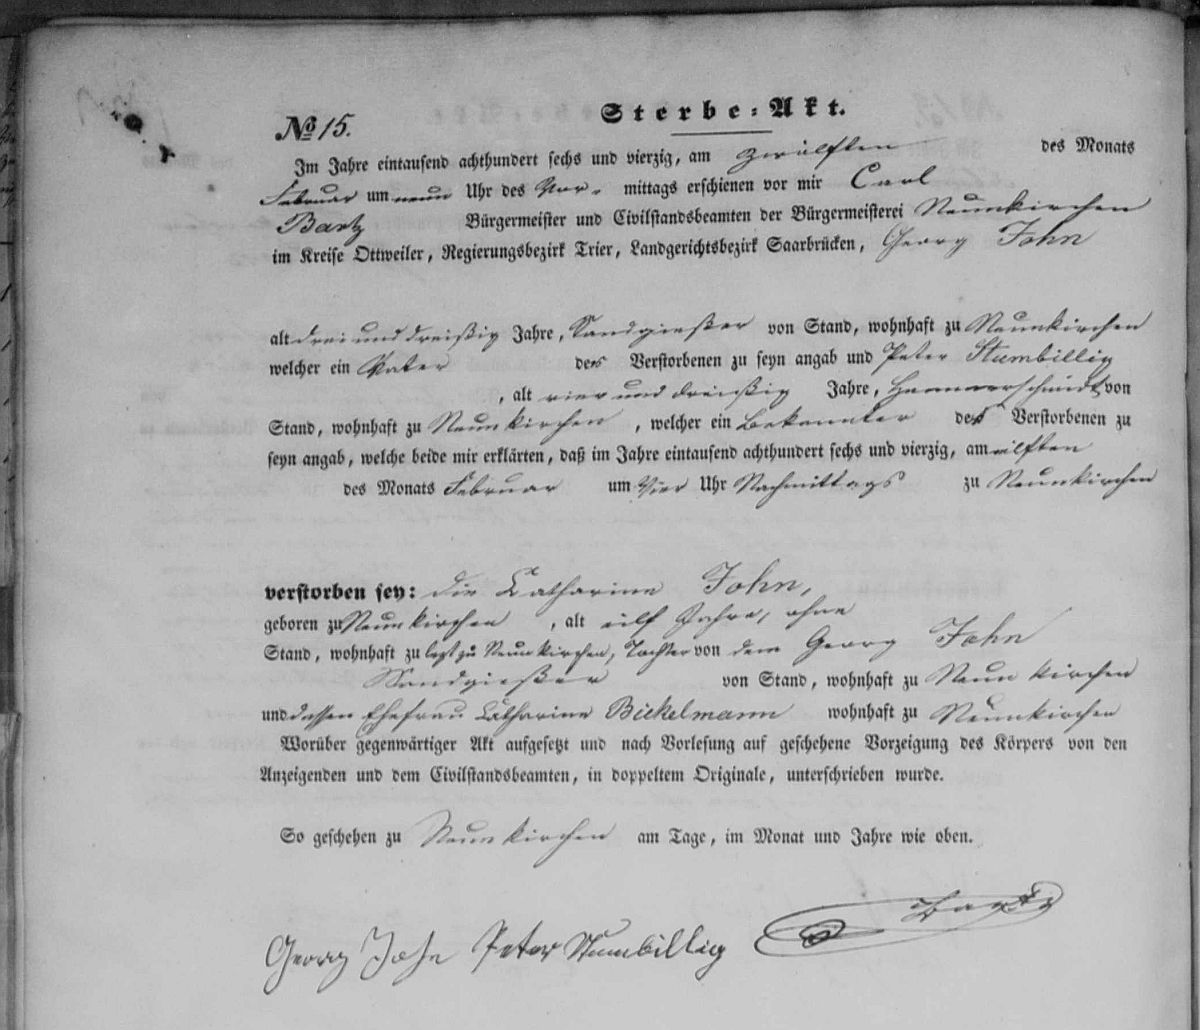 Sterbe-Akt.
No 15.
Im Jahre eintausend achthundert sechs und vierzig, am zwölften des Monats
Februar um neun Uhr des Vor- mittags erschienen vor mir Carl
Bartz Bürgermeister und Civilstandsbeamten der Bürgermeisterei Neunkirchen
im Kreise Ottweiler, Regierungsbezirk Trier, Landgerichtsbezirk Saarbrücken, Georg John
alt drei und dreißig Jahre, Sandgießer von Stand, wohnhaft zu Neunkirchen
welcher ein Vater der Verstorbenen zu seyn angab und Peter Stumbillig
, alt vier und dreißig Jahre, Hammerschmidt von
Stand, wohnhaft zu Neunkirchen, welcher ein Bekannter der Verstorbenen zu
seyn angab, welche beide mir erklärten, daß im Jahre eintausend achthundert sechs und vierzig, am eilften
des Monats Februar um Vier Uhr Nachmittags zu Neunkirchen
verstorben sey: die Catharine John,
geboren zu Neunkirchen, alt eilf Jahre, ohne
Stand, wohnhaft zu lezt zu Neunkirchen, Tochter von dem Georg John
Sandgießer von Stand, wohnhaft zu Neunkirchen
und dessen Ehefrau Catharine Bickelmann wohnhaft zu Neunkirchen
Worüber gegenwärtiger Akt aufgesetzt und nach Vorlesung auf geschehene Vorzeigung des Körpers von den
Anzeigenden und dem Civilstandsbeamten, in doppeltem Originale, unterschrieben wurde.
So geschehen zu Neunkirchen am Tage, im Monat und Jahre wie oben.
Georg John Peter Stumbillig Bartz